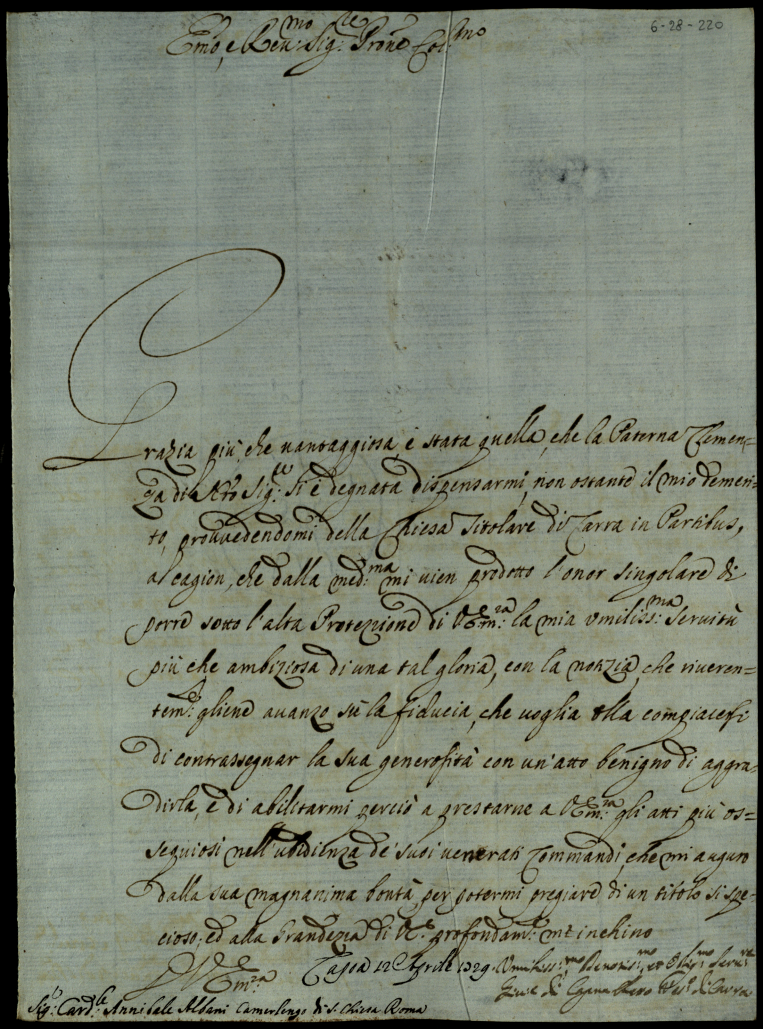 6-28-220
Emo, e Reu:mo Sig:re Prone Col:mo
Grazia più, che uantaggiosa, è stata quella, che la Paterna Clemen=
za di Nro Sig:re si è degnata dispensarmi, non ostante il mio demeri=
to, prouuedendomi della Chiesa Titolare di Carra in Partibus,
a cagion, che dalla med:ma mi uien prodotto l'onor singolare di
porre sotto l'alta Protezzione di V. Em:za la mia vmiliss:ma Seruitù
più che ambiziosa di una tal gloria, con la notizia, che riueren=
tem:e gliene auanzo sù la fiducia, che uoglia ella compiacersi
di contrassegnar la sua generosità con un'atto benigno di aggra=
dirla, e di abilitarmi perciò a prestarne a V. Em:za gli atti più os=
sequiosi nell'ubidienza de' suoi uenerati Commandi, che mi auguro
dalla sua magnanima bontà, per potermi pregiare di un titolo si spe=
cioso; ed alla Grandezza di V. E. profondam:e m'inchino
D V. Em:za
12 Aprile 1729 Vmiliss:mo Deuotiss:mo et Obligmo Seru:re
Sig:r Card:le Annibale Albani Camerlengo di S. Chiesa Roma